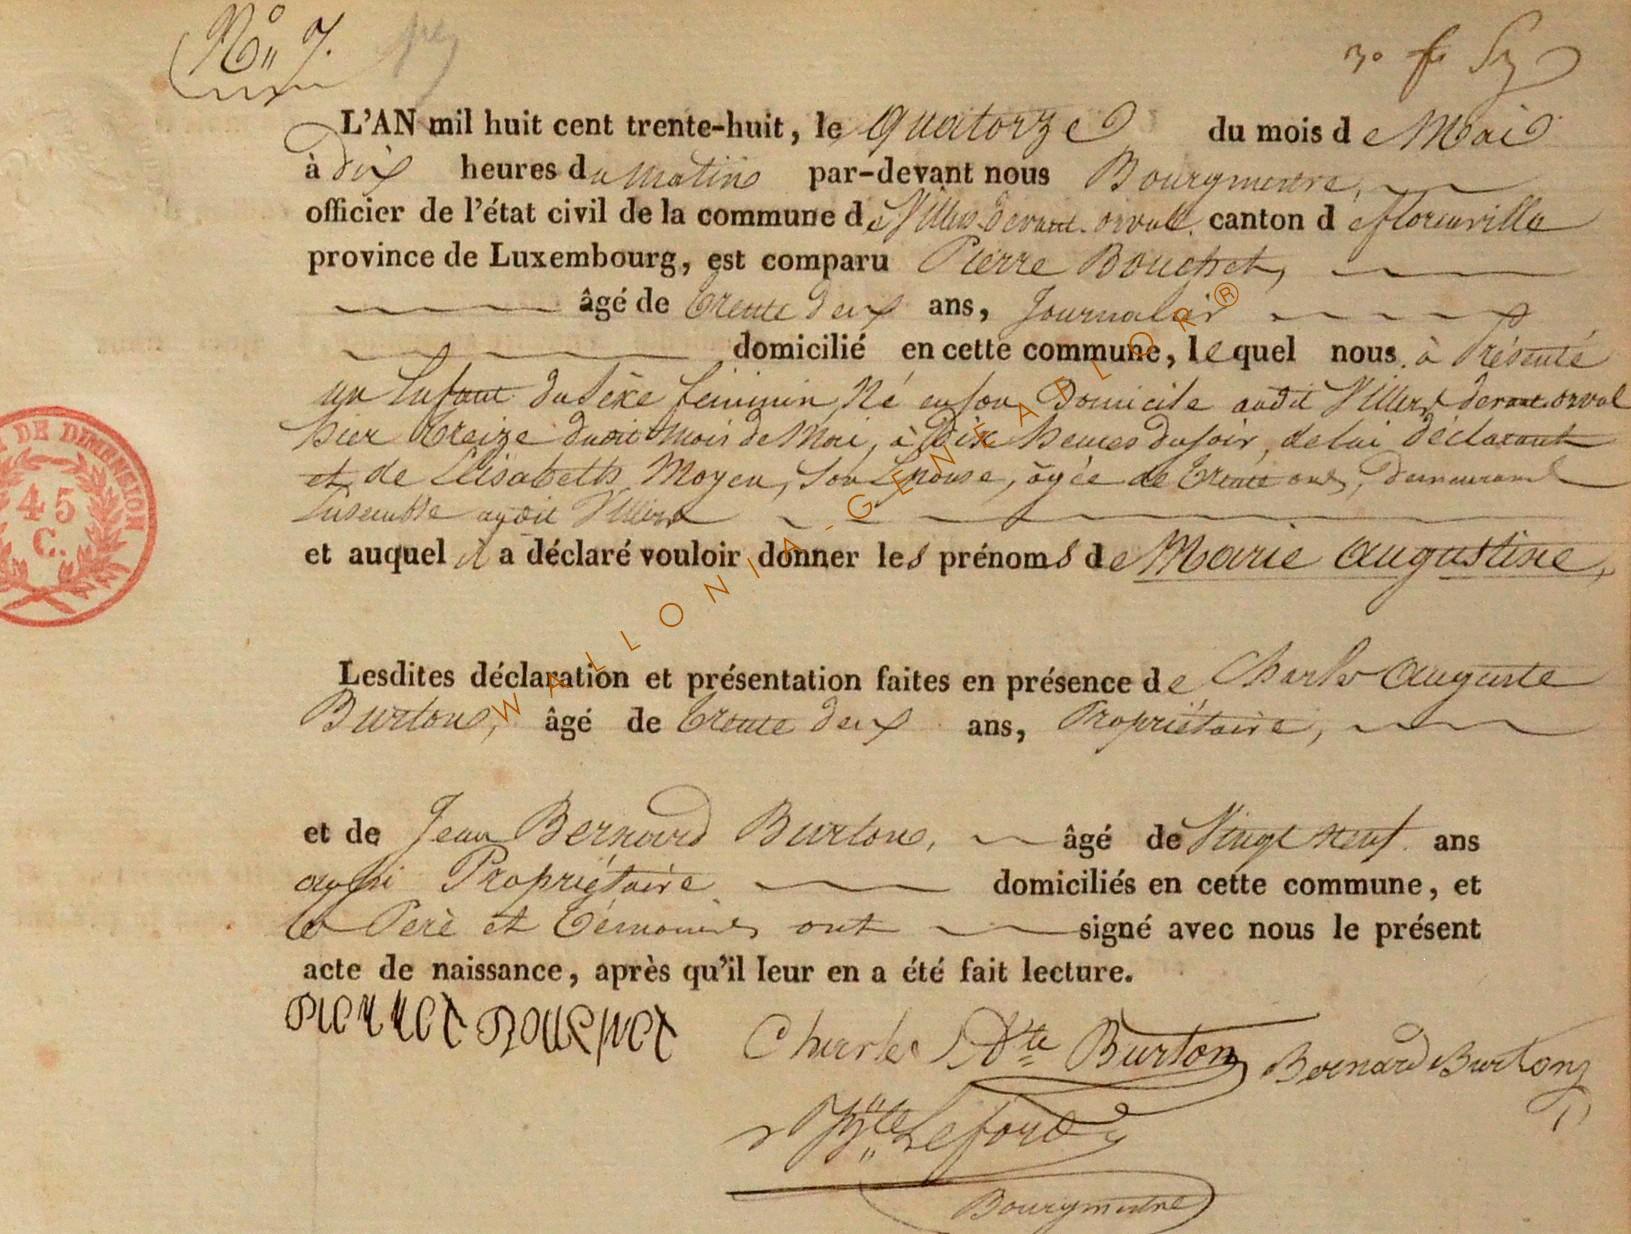 N° 7.
L'AN mil huit cent trente-huit, le quatorze du mois de Mai
à dix heures du matin par-devant nous Bourgmestre,
officier de l'état civil de la commune de Villers devant orval canton de florenville
province de Luxembourg, est comparu Pierre Bouchet,
âgé de trente deux ans, Journalier
domicilié en cette commune, lequel nous à Présenté
un Enfant du Sèxe féminin Né en son Domicile audit Villers devant orval
hier treize dudit mois de Mai, à Dix heures du soir, de lui déclarant
et de Elisabeth Moyen, Son Epouse, âgée de trente ans, demeurant
Ensemble audit Villers
et auquel il a déclaré vouloir donner les prénoms de Marie augustine,
Lesdites déclaration et présentation faites en présence de Charles Auguste
Burton, âgé de trente deux ans, Propriétaire,
et de Jean Bernard Burton, âgé de Vingt neuf ans
aussi Propriétaire domiciliés en cette commune, et
le Père et témoins ont signé avec nous le présent
acte de naissance, après qu'il leur en a été fait lecture.
Charles Ate Burton Bernard Burton
Hyte Lefort
Bourgmestre
DE DIMENSION
45
C.
WALLONIA-GENEAFLOR®